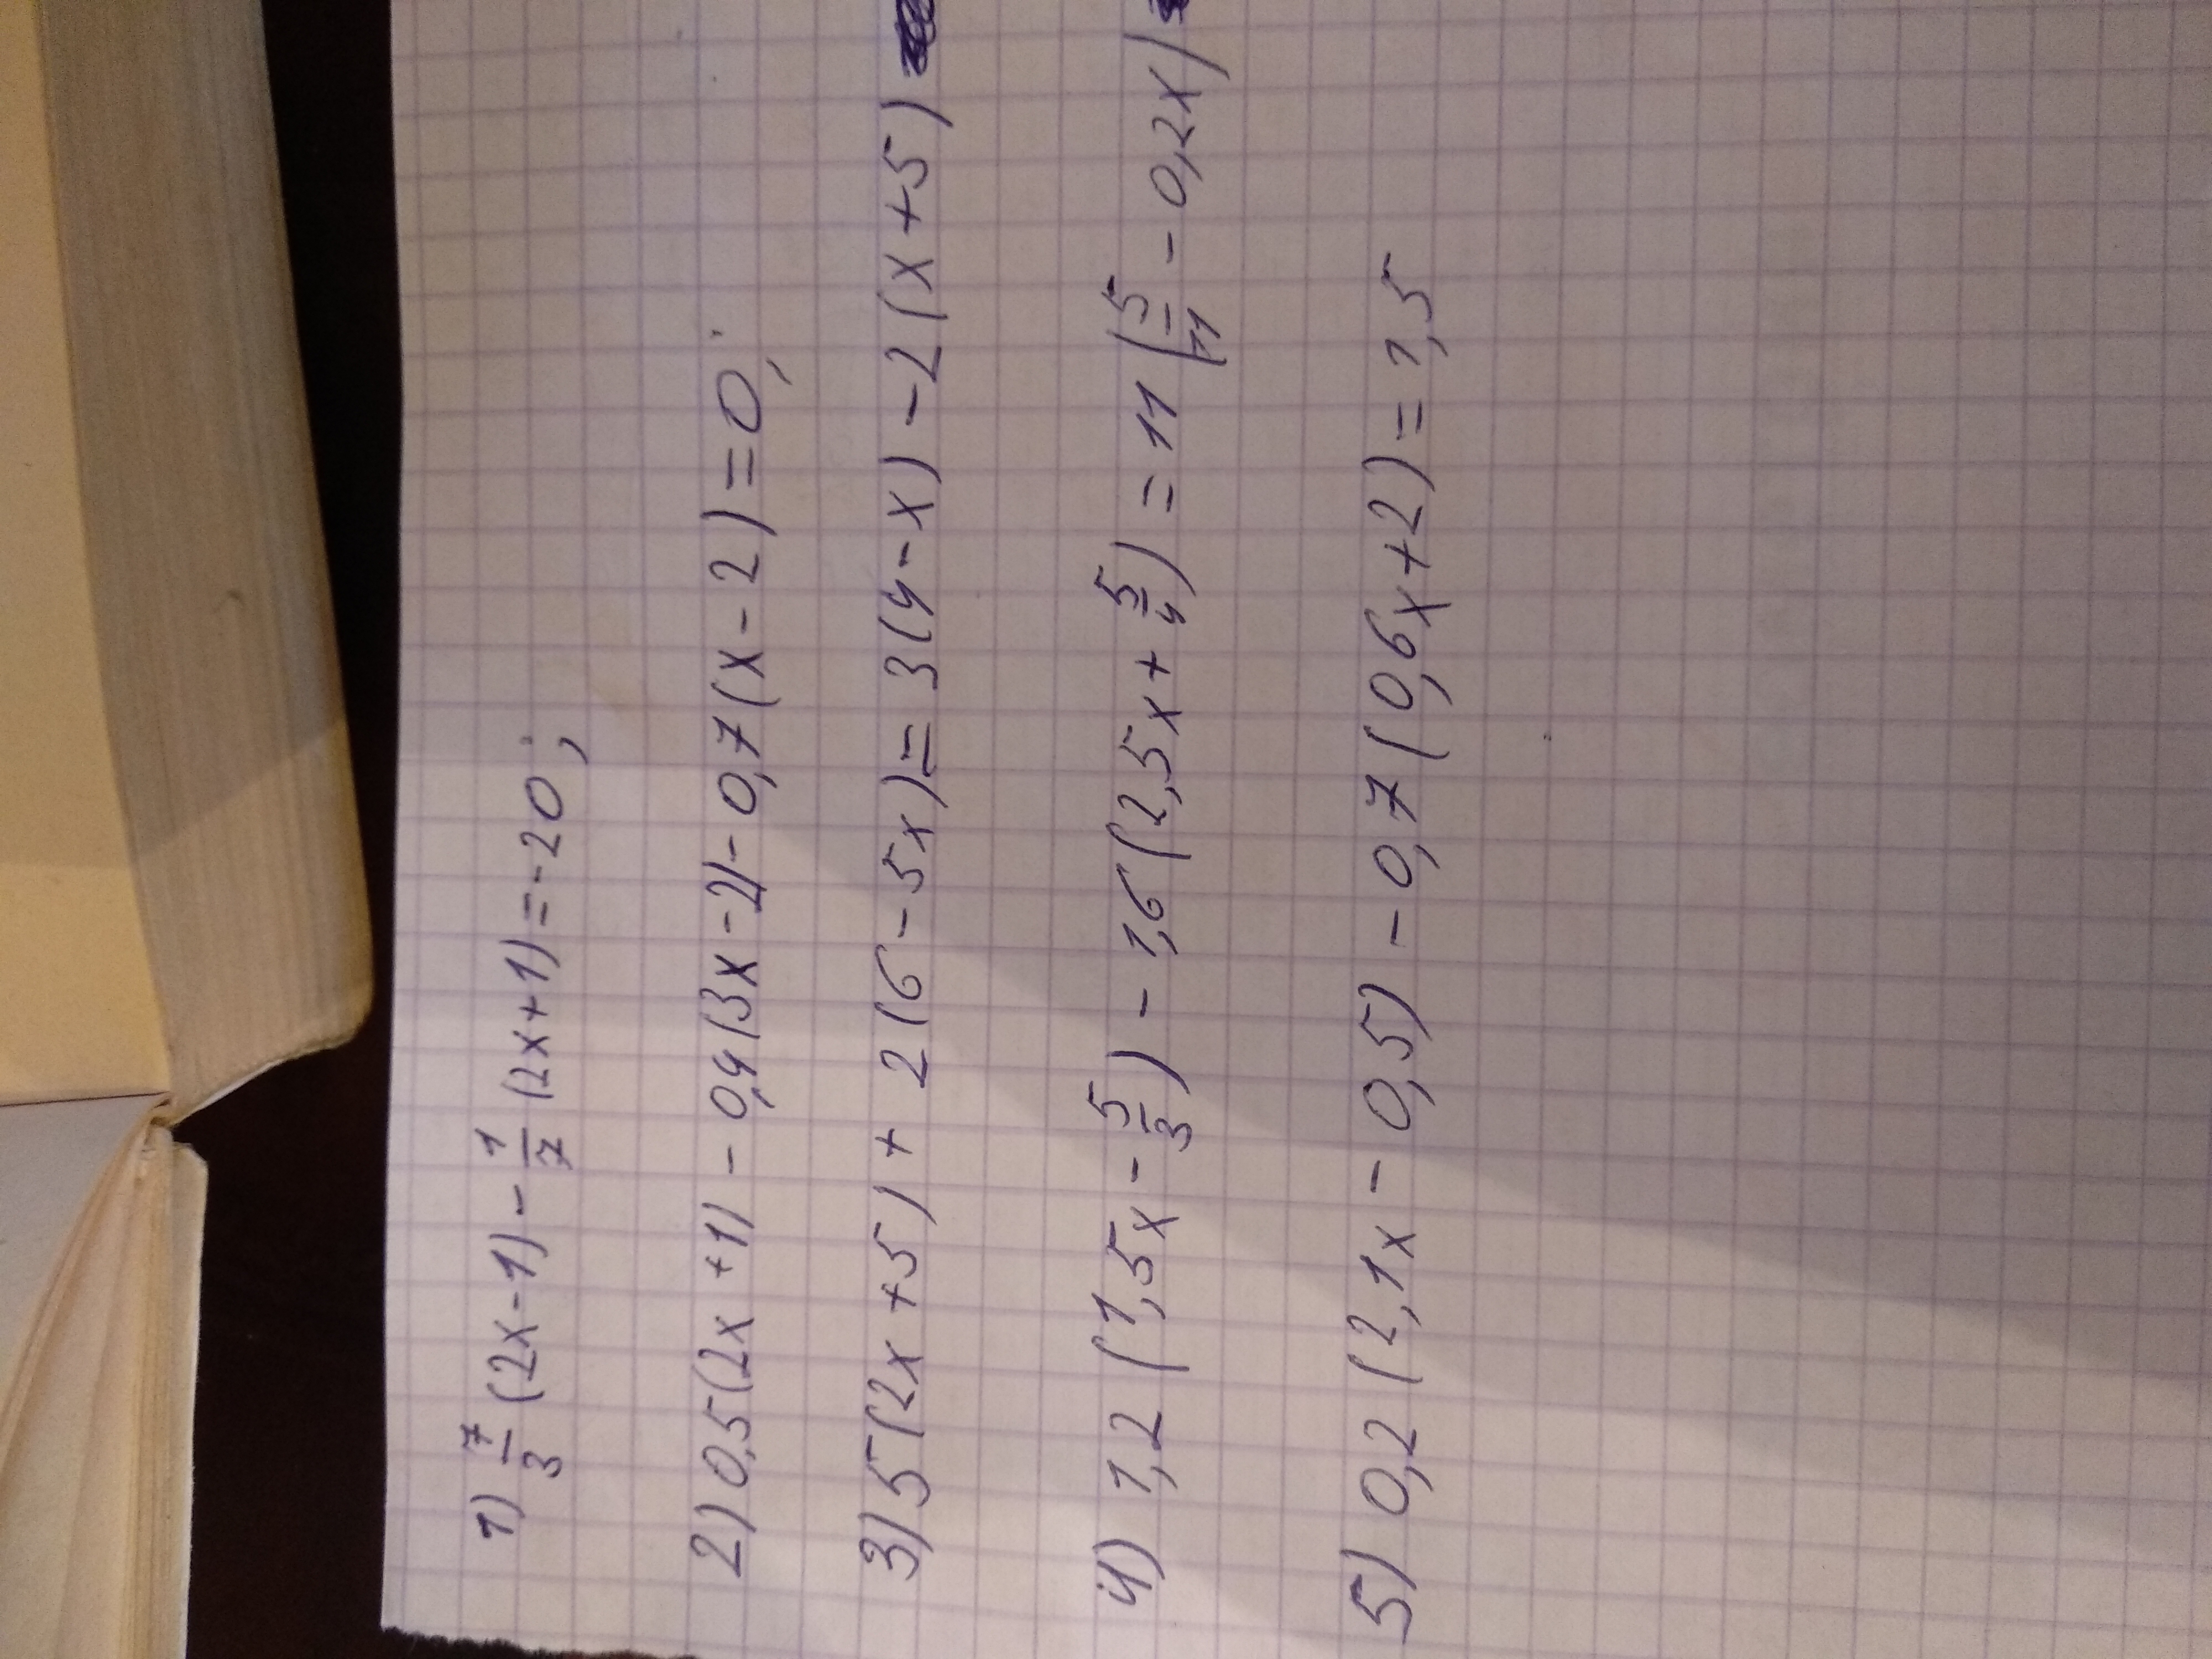 1) 7/3 (2x-1) - 1/7 (2x+1) = -20;
2) 0,5(2x+1) - 0,4(3x-2) - 0,7(x-2) = 0;
3) 5(2x+5) + 2(6-5x) = 3(4-x) - 2(x+5)
4) 1,2 (1,5x - 5/3) - 1,6(2,5x + 5/4) = 11 (5/11 - 0,2x)
5) 0,2 (2,1x - 0,5) - 0,7 (0,6x+2) = 1,5